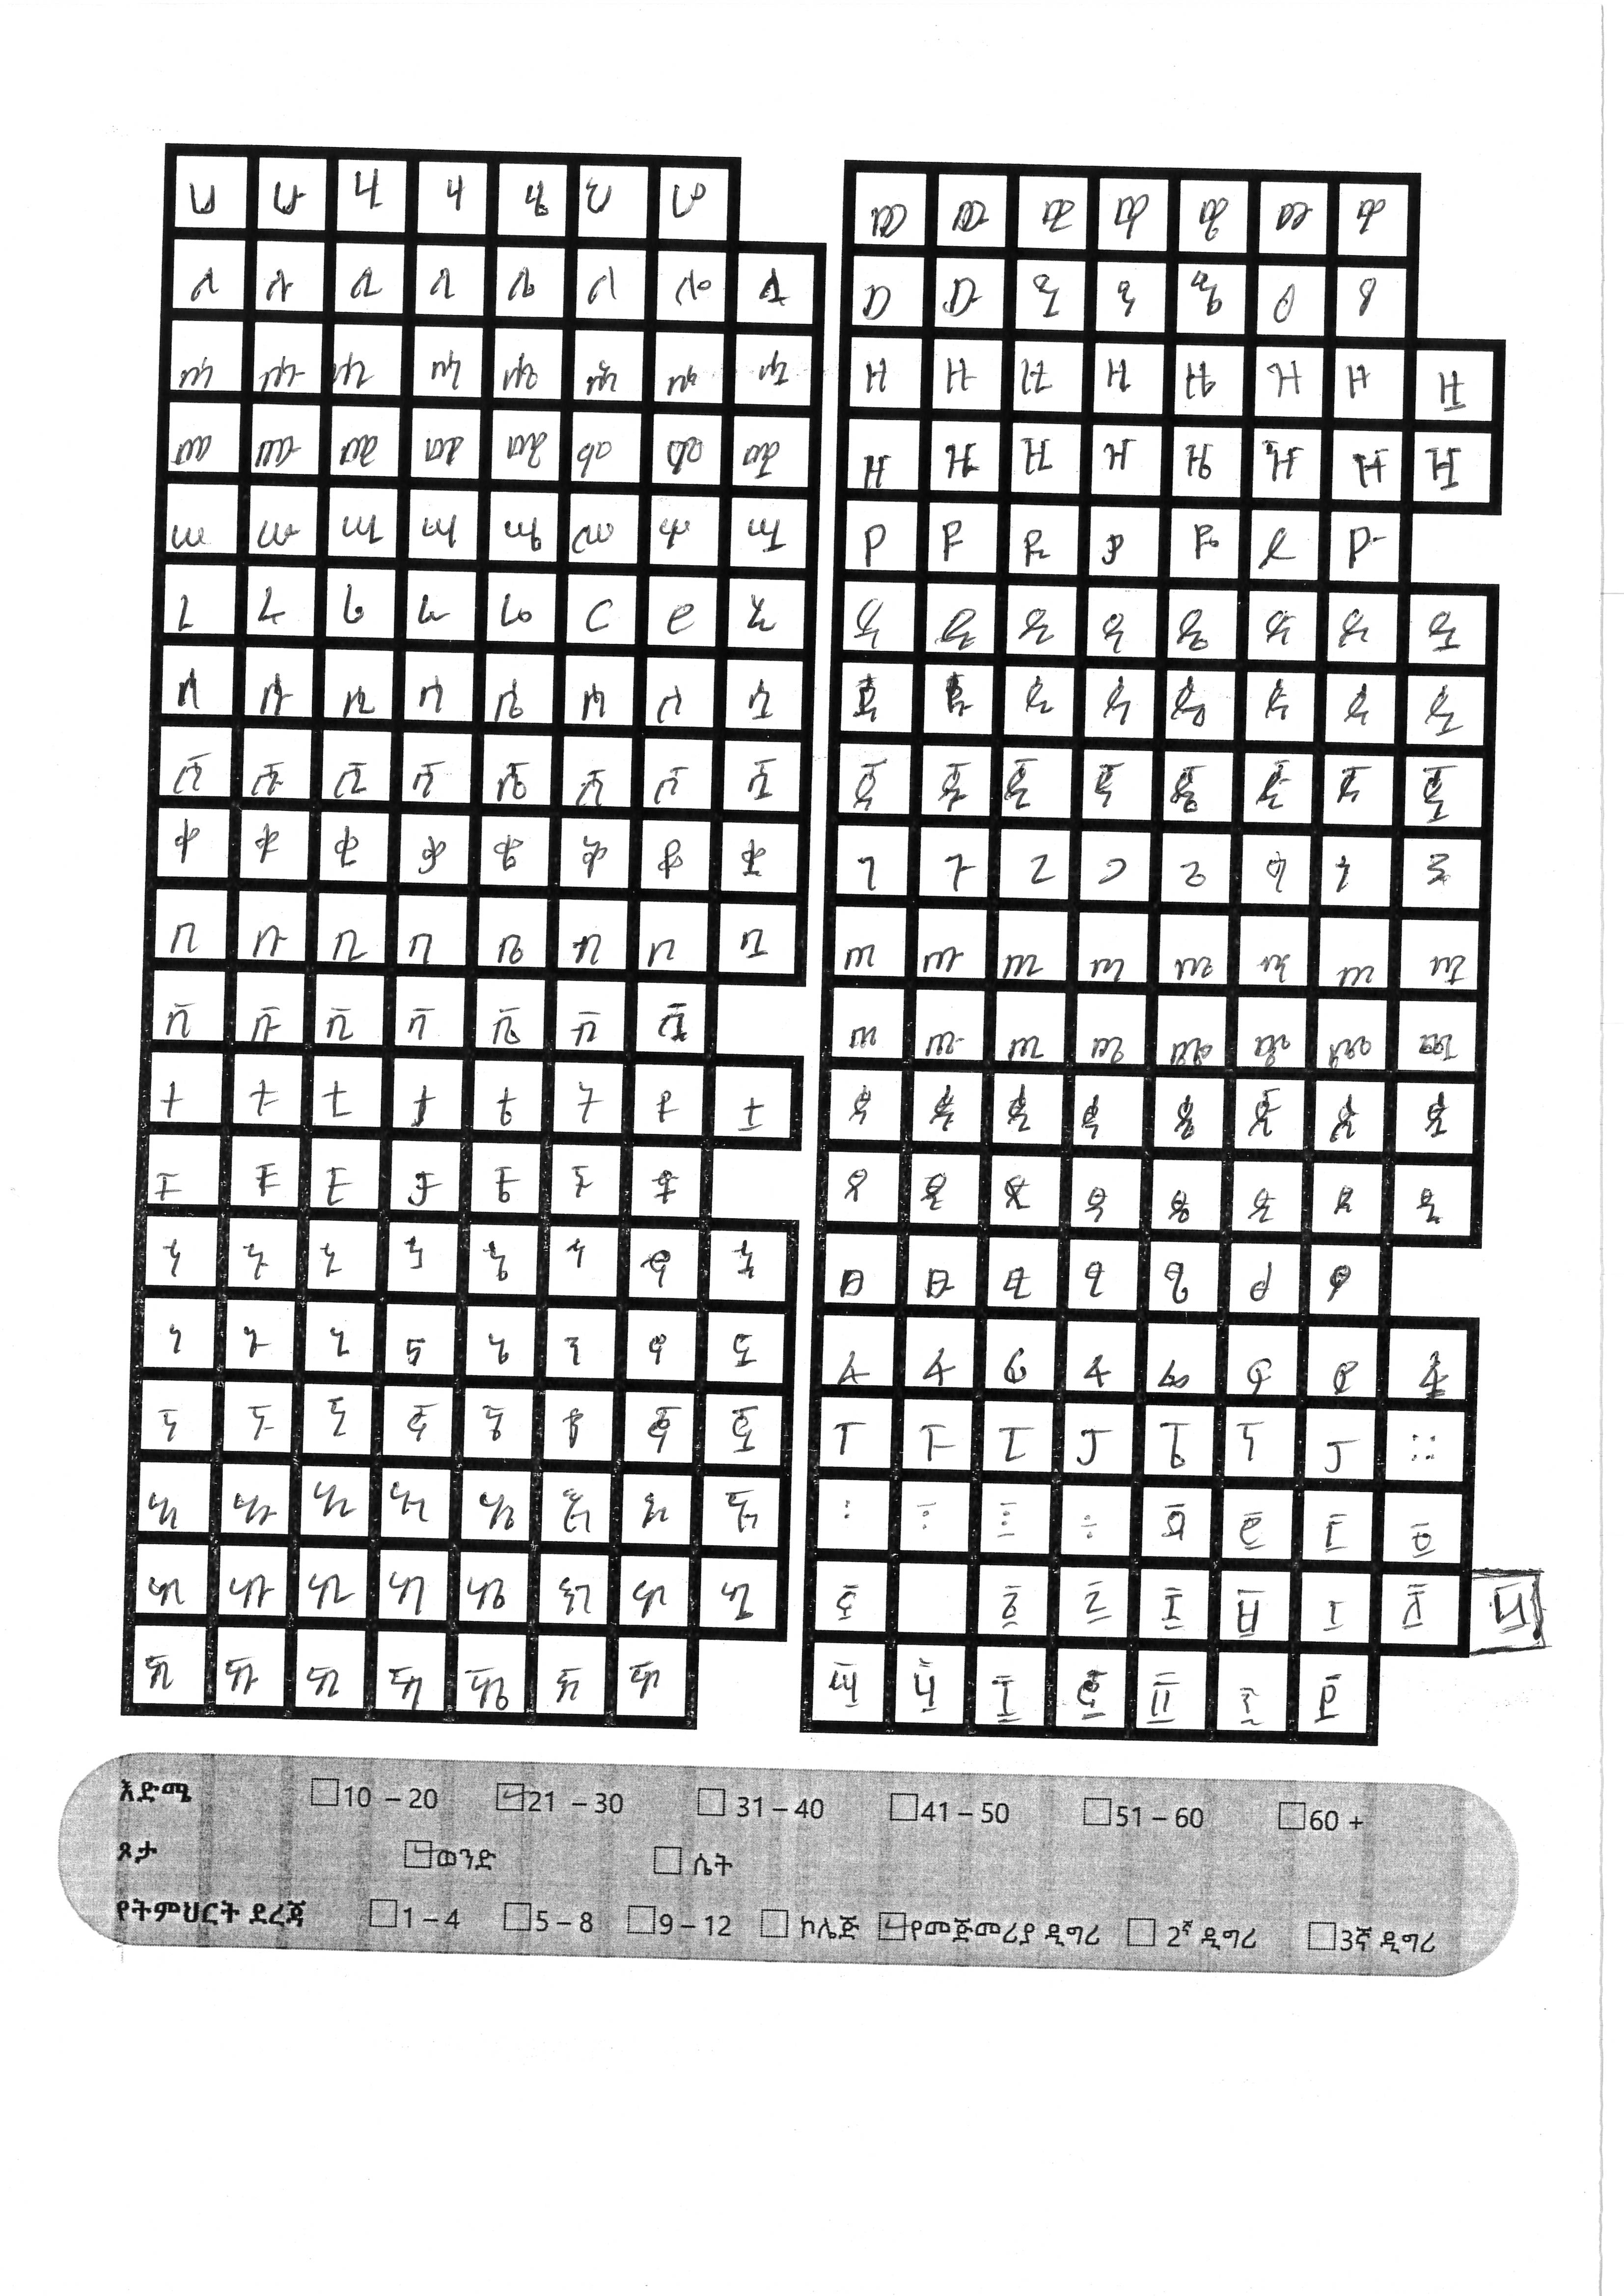 ሀ ሁ ሂ ሃ ሄ ህ ሆ
ለ ሉ ሊ ላ ሌ ል ሎ ሏ
ሐ ሑ ሒ ሓ ሔ ሕ ሖ ሗ
መ ሙ ሚ ማ ሜ ም ሞ ሟ
ሠ ሡ ሢ ሣ ሤ ሥ ሦ ሧ
ረ ሩ ሪ ራ ሬ ር ሮ ሯ
ሰ ሱ ሲ ሳ ሴ ስ ሶ ሷ
ሸ ሹ ሺ ሻ ሼ ሽ ሾ ሿ
ቀ ቁ ቂ ቃ ቄ ቅ ቆ ቋ
በ ቡ ቢ ባ ቤ ብ ቦ ቧ
ቨ ቩ ቪ ቫ ቬ ቭ
ተ ቱ ቲ ታ ቴ ት ቶ ቷ
ቸ ቹ ቺ ቻ ቼ ች ቾ
ኀ ኁ ኂ ኃ ኄ ኅ ኆ ኋ
ነ ኑ ኒ ና ኔ ን ኖ ኗ
ኘ ኙ ኚ ኛ ኜ ኝ ኞ ኟ
አ ኡ ኢ ኣ ኤ እ ኦ ኧ
ከ ኩ ኪ ካ ኬ ክ ኮ ኳ
ኸ ኹ ኺ ኻ ኼ ኽ ኾ
ወ ዉ ዊ ዋ ዌ ው ዎ
ዐ ዑ ዒ ዓ ዔ ዕ ዖ
ዘ ዙ ዚ ዛ ዜ ዝ ዞ ዟ
ዠ ዡ ዢ ዣ ዤ ዥ ዦ ዧ
የ ዩ ዪ ያ ዬ ይ ዮ
ደ ዱ ዲ ዳ ዴ ድ ዶ ዷ
ጀ ጁ ጂ ጃ ጄ ጅ ጆ ጇ
ገ ጉ ጊ ጋ ጌ ግ ጎ ጓ
ጠ ጡ ጢ ጣ ጤ ጥ ጦ ጧ
ጨ ጩ ጪ ጫ ጬ ጭ ጮ ጯ
ጰ ጱ ጲ ጳ ጴ ጵ ጶ ጷ
ጸ ጹ ጺ ጻ ጼ ጽ ጾ ጿ
ፀ ፁ ፂ ፃ ፄ ፅ ፆ
ፈ ፉ ፊ ፋ ፌ ፍ ፎ ፏ
ፐ ፑ ፒ ፓ ፔ ፕ ፖ ።
፩ ፪ ፫ ፬
፭ ፮ ፯ ፰ ፱ ፲ ፳
፵ ፶ ፷ ፸ ፹ ፺ ፻
እድሜ 10 – 20 21 – 30 31 – 40 41 – 50 51 – 60 60 +
ጾታ ወንድ ሴት
የትምህርት ደረጃ 1 – 4 5 – 8 9 – 12 ኮሌጅ የመጀመሪያ ዲግሪ 2ኛ ዲግሪ 3ኛ ዲግሪ